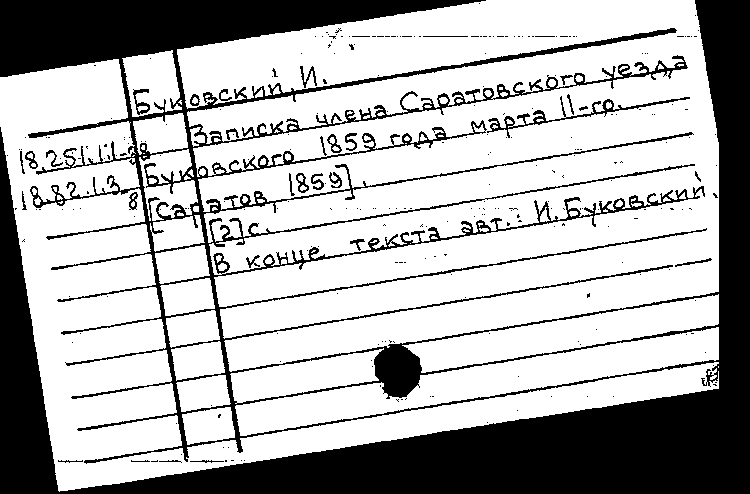 Буковский, И.
Записка члена Саратовского уезда
18.251.1.1-38 Буковского 1859 года марта 11-го.
18.82.1.3 8 [Саратов, 1859].
[2] с.
В конце текста авт.: И. Буковский.